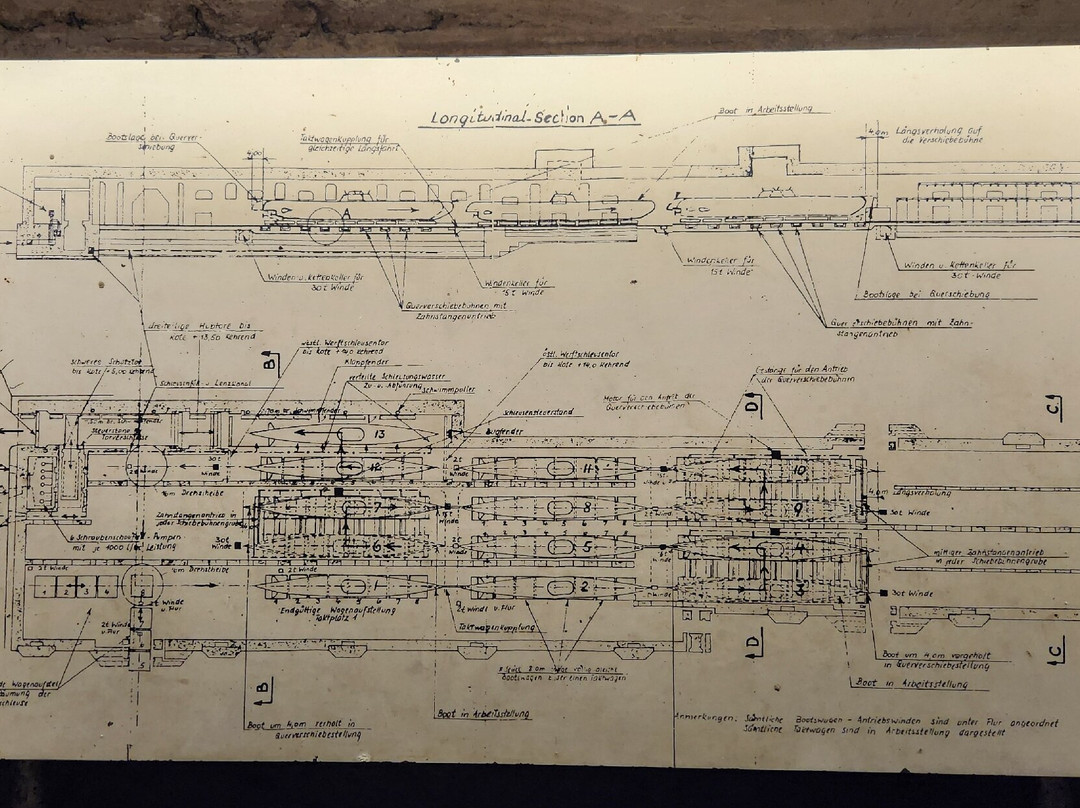 Longitudinal-Section A-A
Boot in Arbeitsstellung
Bootslage bei Querver-
schiebung
Taktwagenkupplung für
gleichzeitige Längsfahrt
4,00
4,0m
Längsverholung auf
die Verschiebebühne
A
Winden u. Kettenkeller für
30t Winde
Windenkeller für
15t Winde
Querverschiebebühnen mit
Zahnstangenantrieb
Windenkeller für
15t Winde
Winden u. Kettenkeller für
30t-Winde
Bootslage bei Querschiebung
Querverschiebebühnen mit Zahn-
stangenantrieb
dreiteilige Hubtore bis
Kote +13,50 kehrend
schweres Schutztor
bis Kote +6,00 kehrend
B
westl. Werftschleusentor
Klopfender
östl. Werftschleusentor
bis Kote +14,0 kehrend
verteilte Schleusungswasser
Zu- u. Abführung
Schwimmpoller
Schleusensteuerstand
Gestänge für den Antrieb
der Querverschiebebühnen
Motor für den Antrieb der
Querverschiebebühnen
D
C
13
12
11
10
30t
Winde
2t
Winde
16m Drehscheibe
4,0m
Längsverholung
7
8
9
30t Winde
Zahnstangenantrieb in
jeder Schiebebühnengrube
6 Schraubenschaufel-Pumpen
mit je 1000 l/sec Leistung
30t
Winde
6
5
4
mittiger Zahnstangenantrieb
in jeder Schiebebühnengrube
5t Winde
16m Drehscheibe
2t Winde
1 2 3 4
1
2
3
30t Winde
2t Winde
u. Flur
Endgültige Wagenaufstellung
Taktplatz 1
2t Winde u. Flur
Taktwagenkupplung
2t Winde
u. Flur
D
C
Boot um 4,0m vorgeholt
in Querverschiebestellung
Bootswagen
einen Taktwagen
B
Boot in Arbeitsstellung
Boot in Arbeitsstellung
Boot um 4,0m verholt in
Querverschiebestellung
Anmerkungen: Sämtliche Bootswagen-Antriebswinden sind unter Flur angeordnet
Sämtliche Taktwagen sind in Arbeitsstellung dargestellt